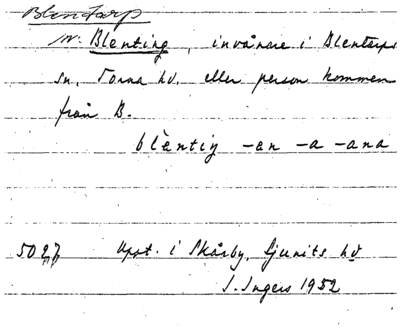 Blentarp
m. Blenting, invånare i Blentarps
sn, Torna hd. eller person kommen
från B.
blèntiŋ -en -a -ana
5027 Uppt. i Skårby, Ljunits hd
I. Ingers 1952